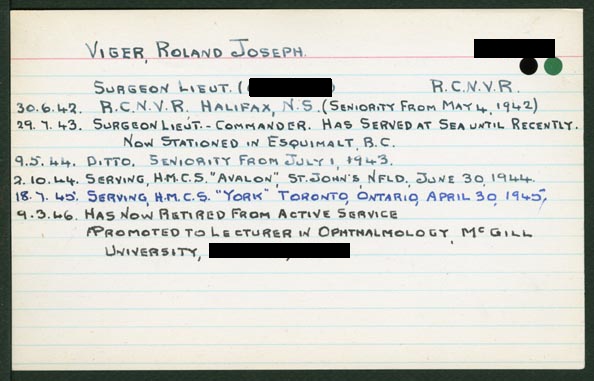 VIGER, ROLAND JOSEPH.
SURGEON LIEUT. ( ) R.C.N.V.R.
30.6.42. R.C.N.V.R. HALIFAX, N.S. (SENIORITY FROM MAY 4, 1942)
29.7.43. SURGEON LIEUT.-COMMANDER. HAS SERVED AT SEA UNTIL RECENTLY.
NOW STATIONED IN ESQUIMALT, B.C.
9.5.44. DITTO. SENIORITY FROM JULY 1, 1943.
2.10.44. SERVING, H.M.C.S. "AVALON", ST. JOHN'S, NFLD, JUNE 30, 1944.
18.7.45. SERVING, H.M.C.S. "YORK" TORONTO, ONTARIO, APRIL 30, 1945.
9.3.46. HAS NOW RETIRED FROM ACTIVE SERVICE
PROMOTED TO LECTURER IN OPHTHALMOLOGY, MCGILL
UNIVERSITY,